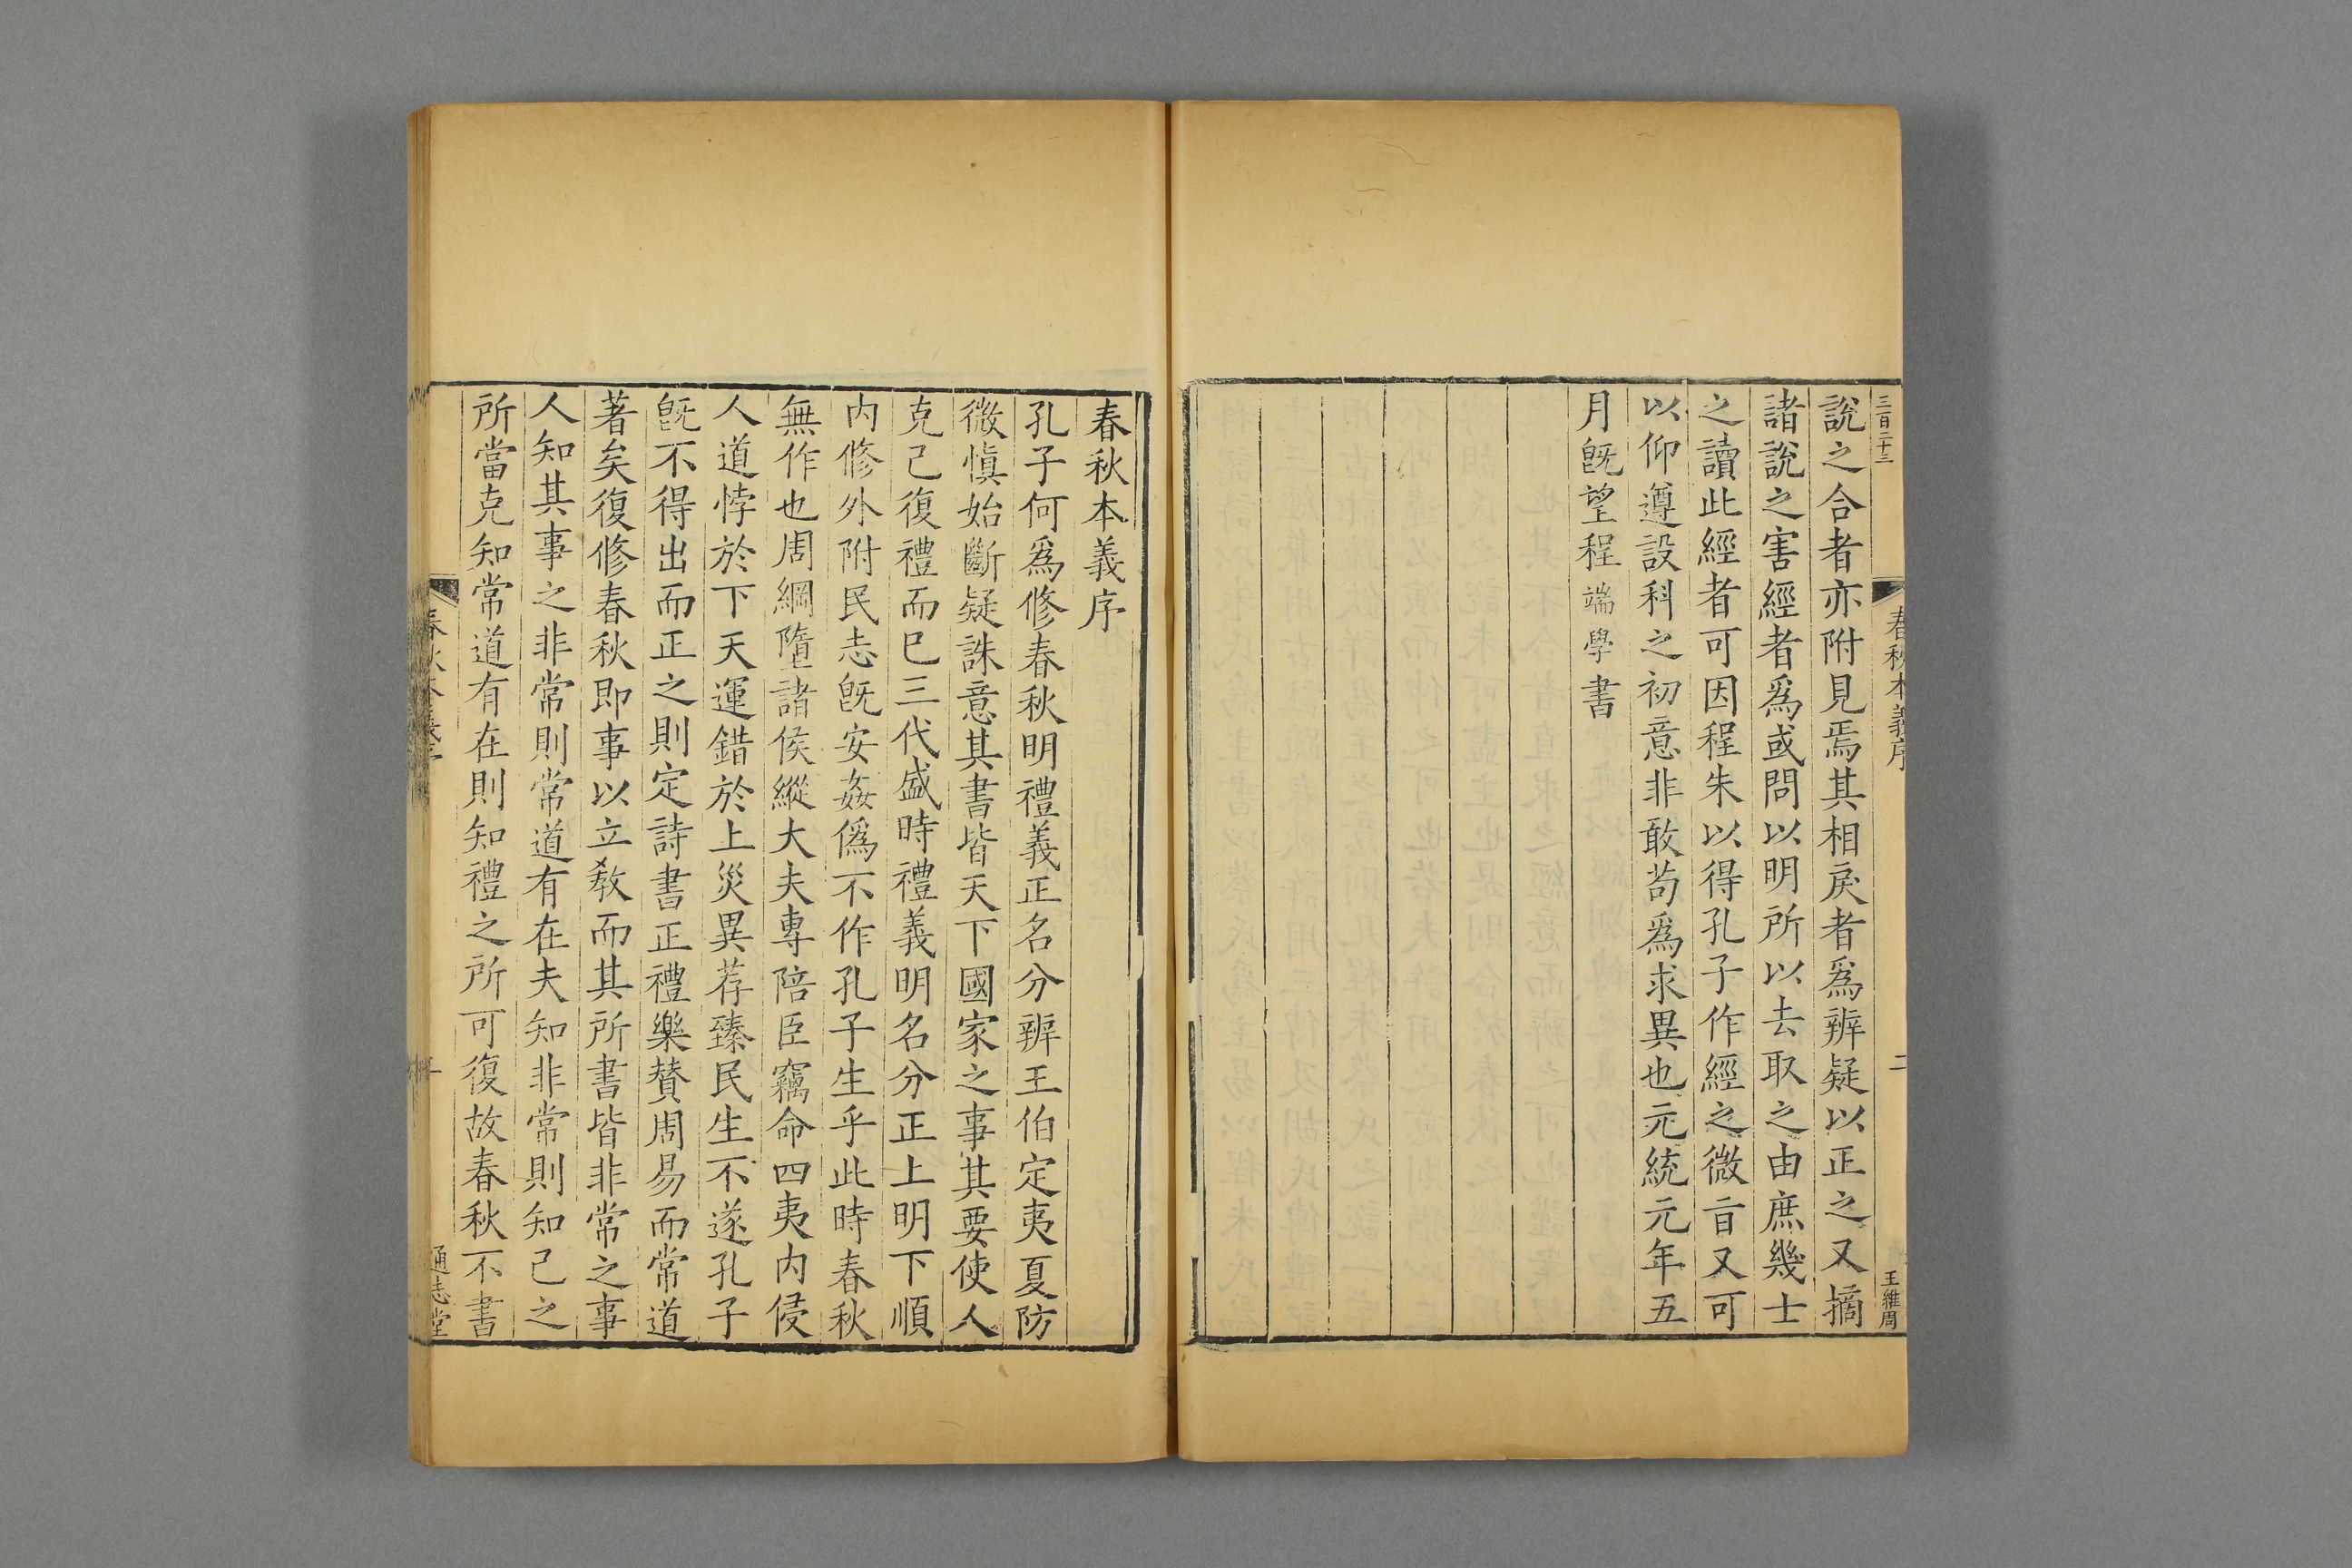 三百二十三
春秋本義序
二
王維周
說之合者亦附見焉其相戾者爲辨疑以正之又摘
諸說之害經者爲或問以明所以去取之由庶幾士
之讀此經者可因程朱以得孔子作經之微㫖又可
以仰遵設科之初意非敢茍爲求異也元統元年五
月旣望程端學書
春秋本義序
孔子何爲修春秋明禮義正名分辨王伯定夷夏防
微愼始斷疑誅意其書皆天下國家之事其要使人
克己復禮而已三代盛時禮義明名分正上明下順
内修外附民志旣安姦僞不作孔子生乎此時春秋
無作也周綱墮諸侯縱大夫專陪臣竊命四夷内侵
人道悖於下天運錯於上災異荐臻民生不遂孔子
旣不得出而正之則定詩書正禮樂賛周易而常道
著矣復修春秋即事以立敎而其所書皆非常之事
人知其事之非常則常道有在夫知非常則知己之
所當克知常道有在則知禮之所可復故春秋不書
春秋本義序
一
通志堂